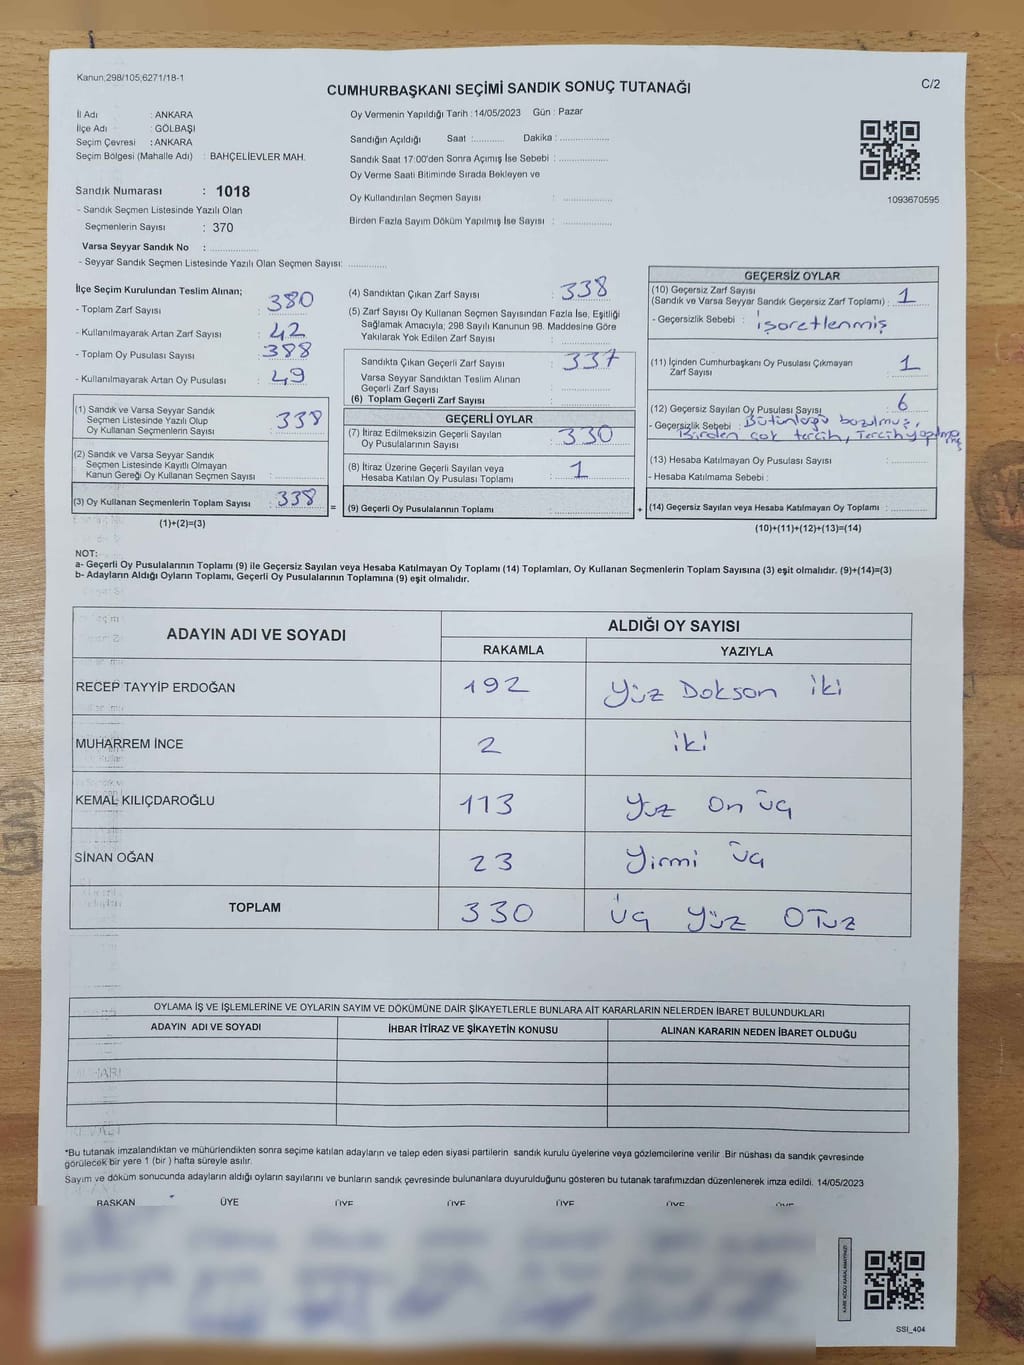 Kanun;298/105;6271/18-1
CUMHURBAŞKANI SEÇİMİ SANDIK SONUÇ TUTANAĞI
C/2
İl Adı : ANKARA
İlçe Adı : GÖLBAŞI
Seçim Çevresi : ANKARA
Seçim Bölgesi (Mahalle Adı) : BAHÇELİEVLER MAH.
Sandık Numarası : 1018
- Sandık Seçmen Listesinde Yazılı Olan
Seçmenlerin Sayısı : 370
Varsa Seyyar Sandık No :
- Seyyar Sandık Seçmen Listesinde Yazılı Olan Seçmen Sayısı:
Oy Vermenin Yapıldığı Tarih : 14/05/2023 Gün : Pazar
Sandığın Açıldığı Saat : Dakika :
Sandık Saat 17:00'den Sonra Açımış İse Sebebi :
Oy Verme Saati Bitiminde Sırada Bekleyen ve
Oy Kullandırılan Seçmen Sayısı :
Birden Fazla Sayım Döküm Yapılmış İse Sayısı :
1093670595
İlçe Seçim Kurulundan Teslim Alınan;
- Toplam Zarf Sayısı : 380
- Kullanılmayarak Artan Zarf Sayısı : 42
- Toplam Oy Pusulası Sayısı : 388
- Kullanılmayarak Artan Oy Pusulası : 49
(1) Sandık ve Varsa Seyyar Sandık
Seçmen Listesinde Yazılı Olup
Oy Kullanan Seçmenlerin Sayısı : 338
(2) Sandık ve Varsa Seyyar Sandık
Seçmen Listesinde Kayıtlı Olmayan
Kanun Gereği Oy Kullanan Seçmen Sayısı :
(3) Oy Kullanan Seçmenlerin Toplam Sayısı : 338 =
(1)+(2)=(3)
(4) Sandıktan Çıkan Zarf Sayısı : 338
(5) Zarf Sayısı Oy Kullanan Seçmen Sayısından Fazla İse, Eşitliği
Sağlamak Amacıyla; 298 Sayılı Kanunun 98. Maddesine Göre
Yakılarak Yok Edilen Zarf Sayısı :
Sandıkta Çıkan Geçerli Zarf Sayısı : 337
Varsa Seyyar Sandıktan Teslim Alınan
Geçerli Zarf Sayısı :
(6) Toplam Geçerli Zarf Sayısı :
GEÇERLİ OYLAR
(7) İtiraz Edilmeksizin Geçerli Sayılan
Oy Pusulalarının Sayısı : 330
(8) İtiraz Üzerine Geçerli Sayılan veya
Hesaba Katılan Oy Pusulası Toplamı : 1
(9) Geçerli Oy Pusulalarının Toplamı : +
GEÇERSİZ OYLAR
(10) Geçersiz Zarf Sayısı
(Sandık ve Varsa Seyyar Sandık Geçersiz Zarf Toplamı) : 1
- Geçersizlik Sebebi : İşaretlenmiş
(11) İçinden Cumhurbaşkanı Oy Pusulası Çıkmayan
Zarf Sayısı : 1
(12) Geçersiz Sayılan Oy Pusulası Sayısı : 6
- Geçersizlik Sebebi : Bütünlüğü bozulmuş,
Birden çok tercih, Tercih yapılmamış
(13) Hesaba Katılmayan Oy Pusulası Sayısı :
- Hesaba Katılmama Sebebi :
(14) Geçersiz Sayılan veya Hesaba Katılmayan Oy Toplamı :
(10)+(11)+(12)+(13)=(14)
NOT:
a- Geçerli Oy Pusulalarının Toplamı (9) ile Geçersiz Sayılan veya Hesaba Katılmayan Oy Toplamı (14) Toplamları, Oy Kullanan Seçmenlerin Toplam Sayısına (3) eşit olmalıdır. (9)+(14)=(3)
b- Adayların Aldığı Oyların Toplamı, Geçerli Oy Pusulalarının Toplamına (9) eşit olmalıdır.
ADAYIN ADI VE SOYADI
ALDIĞI OY SAYISI
RAKAMLA YAZIYLA
RECEP TAYYİP ERDOĞAN 192 Yüz Doksan iki
MUHARREM İNCE 2 iki
KEMAL KILIÇDAROĞLU 113 Yüz On üç
SİNAN OĞAN 23 Yirmi üç
TOPLAM 330 üç yüz OTuz
OYLAMA İŞ VE İŞLEMLERİNE VE OYLARIN SAYIM VE DÖKÜMÜNE DAİR ŞİKAYETLERLE BUNLARA AİT KARARLARIN NELERDEN İBARET BULUNDUKLARI
ADAYIN ADI VE SOYADI İHBAR İTİRAZ VE ŞİKAYETİN KONUSU ALINAN KARARIN NEDEN İBARET OLDUĞU
*Bu tutanak imzalandıktan ve mühürlendikten sonra seçime katılan adayların ve talep eden siyasi partilerin sandık kurulu üyelerine veya gözlemcilerine verilir .Bir nüshası da sandık çevresinde
görülecek bir yere 1 (bir ) hafta süreyle asılır.
Sayım ve döküm sonucunda adayların aldığı oyların sayılarını ve bunların sandık çevresinde bulunanlara duyurulduğunu gösteren bu tutanak tarafımızdan düzenlenerek imza edildi. 14/05/2023
BAŞKAN ÜYE ÜYE ÜYE ÜYE ÜYE ÜYE
KARE KODU KARALAMAYINIZ!
SSI_404